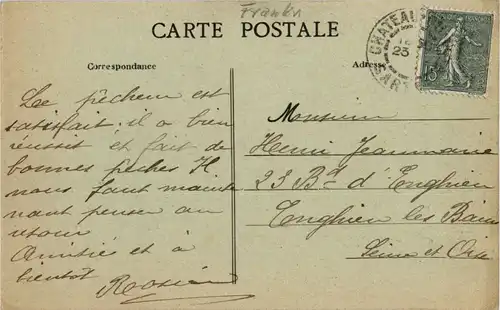 Frankr
CARTE POSTALE
Correspondance
Adresse
CHATEAU
23
SAR
15
Le pêcheur est
satisfait. il a bien
réussit et fait de
bonnes pêches. Il
nous faut mainte
nant penser au
retour
Amitié et à
bientôt
Monsieur
Henri Jeanmaire
23 Bd d'Enghien
Enghien les Bains
Seine et Oise